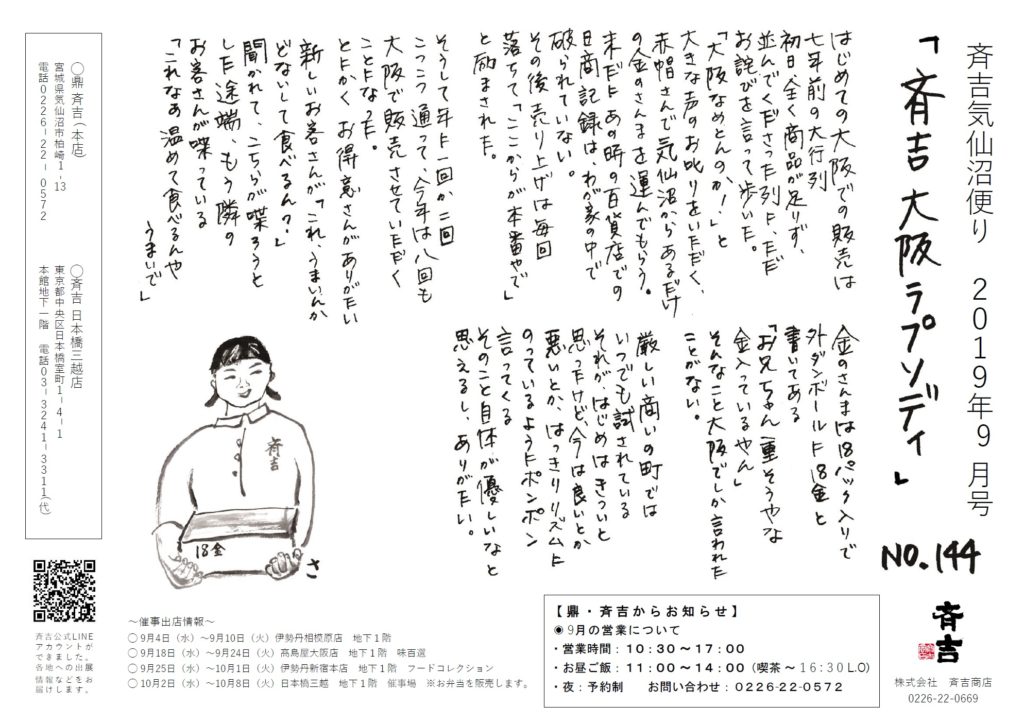 斉吉気仙沼便り 2019年9月号
「斉吉 大阪ラプソディ」
NO.144
斉吉
株式会社 斉吉商店
0226-22-0669
はじめての大阪での販売は
七年前の大行列
初日、全く商品が足りず、
並んでくださった列に、ただ
お詫びを言って歩いた。
「大阪なめとんのか！」と
大きな声のお叱りをいただく、
赤帽さんで気仙沼からあるだけ
の金のさんまを運んでもらう。
未だにあの時の百貨店での
日商記録は、わが家の中で
破られていない。
その後売り上げは毎回
落ちて「ここからが本番やで」
と励まされた。
そうして年に一回か二回
こつこつ通って、今年は八回も
大阪で販売させていただく
ことになった。
とにかくお得意さんがありがたい
新しいお客さんが「これ、うまいんか
どないして食べるん？」
聞かれて、こちらが喋ろうと
した途端、もう隣の
お客さんが喋っている
「これなあ温めて食べるんや
うまいで」
金のさんまは18パック入りで
外ダンボールに18金と
書いてある
「お兄ちゃん、重そうやな
金入っているやん」
そんなこと大阪でしか言われた
ことがない。
厳しい商いの町では
いつでも試されている
それが、はじめはきついと
思ったけど、今は良いとか
悪いとか、はっきりリズムに
のっているようにポンポン
言ってくる
そのこと自体が優しいなと
思えるし、ありがたい。
斉吉
18金
さ
◯鼎 斉吉（本店）
宮城県気仙沼市柏崎1-13
電話0226-22-0572
◯斉吉 日本橋三越店
東京都中央区日本橋室町1-4-1
本館地下一階 電話03-3241-3311(代)
斉吉公式LINE
アカウントが
できました。
各地への出展
情報などをお
届けします。
～催事出店情報～
◯9月4日（水）～9月10日（火）伊勢丹相模原店 地下1階
◯9月18日（水）～9月24日（火）髙島屋大阪店 地下1階 味百選
◯9月25日（水）～10月1日（火）伊勢丹新宿本店 地下1階 フードコレクション
◯10月2日（水）～10月8日（火）日本橋三越 地下1階 催事場 ※お弁当を販売します。
【鼎・斉吉からお知らせ】
◉9月の営業について
・営業時間：10:30～17:00
・お昼ご飯：11:00～14:00（喫茶～16:30 L.O）
・夜：予約制 お問い合わせ：0226-22-0572